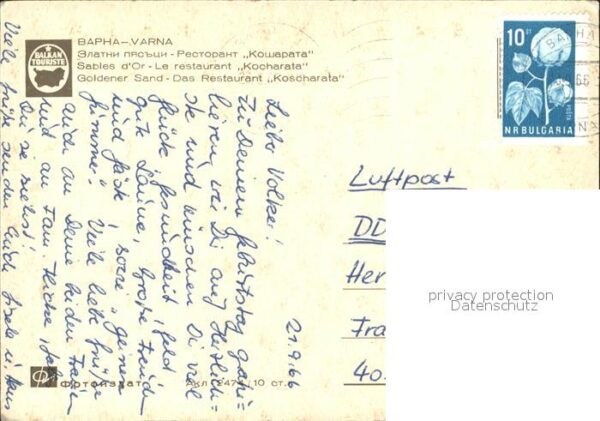 BALKAN
TOURISTE
ВАРНА—VARNA
Златни пясъци - Ресторант „Кошарата"
Sables d'Or - Le restaurant „Kocharata"
Goldener Sand - Das Restaurant „Koscharata"
10 СТ
ПОЩА
NR BULGARIA
66
Liebe Volker!
Zu Deinem Geburtstag gratu-
lieren wir Dir auf Herzlich-
ste und wünschen Dir viel
Glück, Gesundheit, Geld
gute Laune, Große Freude
und Glück, sowie „
Himmel". Viele liebe Grüße
auch an Deine beiden Frauen
und an Fam.
Du siehst!
Viele Grüße senden Euch u. Klaus
21.9.66
Luftpost
DD
Her
Fra
40
privacy protection
Datenschutz
Фотоиздат
Акл 2474/10 ст.